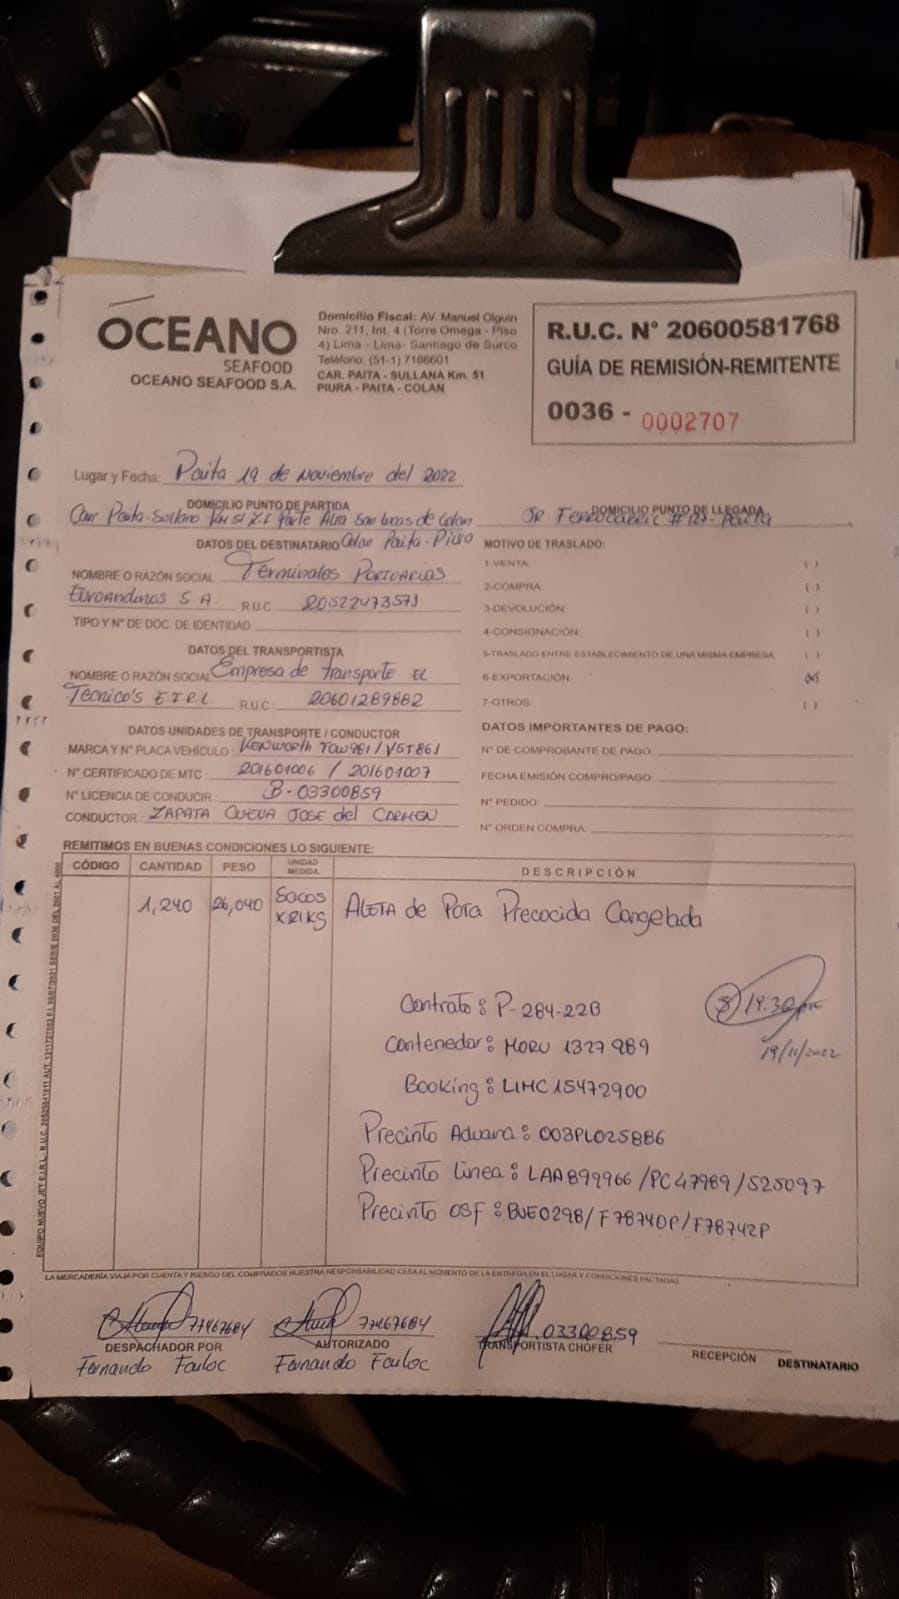 OCEANO
SEAFOOD
OCEANO SEAFOOD S.A.
Domicilio Fiscal: AV. Manuel Olguin
Nro. 211, Int. 4 (Torre Omega - Piso
4) Lima - Lima- Santiago de Surco
Teléfono: (51-1) 7166601
CAR. PAITA - SULLANA Km. 51
PIURA - PAITA - COLAN
R.U.C. N° 20600581768
GUÍA DE REMISIÓN-REMITENTE
0036 - 0002707
Lugar y Fecha: Paita 19 de Noviembre del 2022
DOMICILIO PUNTO DE PARTIDA
Carr Paita-Sullana Km 51 Z.I. Parte Alta San Lucas de Colan
Colan Paita-Piura
DOMICILIO PUNTO DE LLEGADA
JR. FERROCARRIL # 127- Paita
DATOS DEL DESTINATARIO
NOMBRE O RAZÓN SOCIAL Terminales PORTUARIOS
Euroandinos S A. R.U.C. 20522473571
TIPO Y N° DE DOC. DE IDENTIDAD:
DATOS DEL TRANSPORTISTA
NOMBRE O RAZÓN SOCIAL Empresa de transporte EL
Tecnico's E.I.R.L R.U.C. 20601289882
DATOS UNIDADES DE TRANSPORTE / CONDUCTOR
MARCA Y N° PLACA VEHÍCULO: KENWORTH TOW981 / V5T861
N° CERTIFICADO DE MTC: 201601006 / 201601007
N° LICENCIA DE CONDUCIR: B-03300859
CONDUCTOR: ZAPATA CUEVA JOSE del CARMEN
MOTIVO DE TRASLADO:
1-VENTA: ( )
2-COMPRA: ( )
3-DEVOLUCIÓN: ( )
4-CONSIGNACIÓN: ( )
5-TRASLADO ENTRE ESTABLECIMIENTO DE UNA MISMA EMPRESA ( )
6-EXPORTACIÓN: (X)
7-OTROS: ( )
DATOS IMPORTANTES DE PAGO:
N° DE COMPROBANTE DE PAGO:
FECHA EMISIÓN COMPRO/PAGO:
N° PEDIDO:
N° ORDEN COMPRA:
REMITIMOS EN BUENAS CONDICIONES LO SIGUIENTE:
CÓDIGO CANTIDAD PESO UNIDAD MEDIDA DESCRIPCIÓN
1,240 26,040 Sacos x21KG ALETA de POTA Precocida Congelada
Contrato: P-284-22B
Contenedor: MORU 1327989
Booking: LIMC15472900
Precinto Aduana: 003PL025886
Precinto Linea: LAA899966/PC47989/S25097
Precinto OSF: BUE0298/F78740P/F78742P
19:30
19/11/2022
LA MERCADERÍA VIAJA POR CUENTA Y RIESGO DEL COMPRADOR NUESTRA RESPONSABILIDAD CESA AL MOMENTO DE LA ENTREGA EN EL LUGAR Y CONDICIONES PACTADAS
77467684 77467684 03300859
DESPACHADOR POR AUTORIZADO TRANSPORTISTA CHOFER RECEPCIÓN DESTINATARIO
Fernando Fauloc Fernando Fauloc